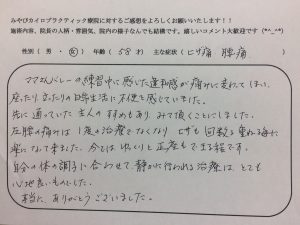 みやびカイロプラクティック療院に対するご感想をよろしくお願いいたします！！
施術内容、院長の人柄・雰囲気、院内の様子なんでも結構です。嬉しいコメント大歓迎です (*^_^*)
性別 ( 男 ・ 女 ) 年齢 ( 58才 ) 主な症状 ( ヒザ痛 腰痛 )
ママさんバレーの練習中に感じた違和感が痛みに変わってしまい、
座ったり、立ったりの日常生活に不便を感じていました。
先に通っていた主人の すすめもあり、みて頂くことにしました。
左腰の痛みは 1度の治療でなくなり ヒザも 回数を重ねる毎に
楽になって来ました。今では ゆっくりと 正座も できる程です。
自分の体の調子に合わせて、静かに行われる治療は とても
心地良いものでした。
本当に ありがとうございました。